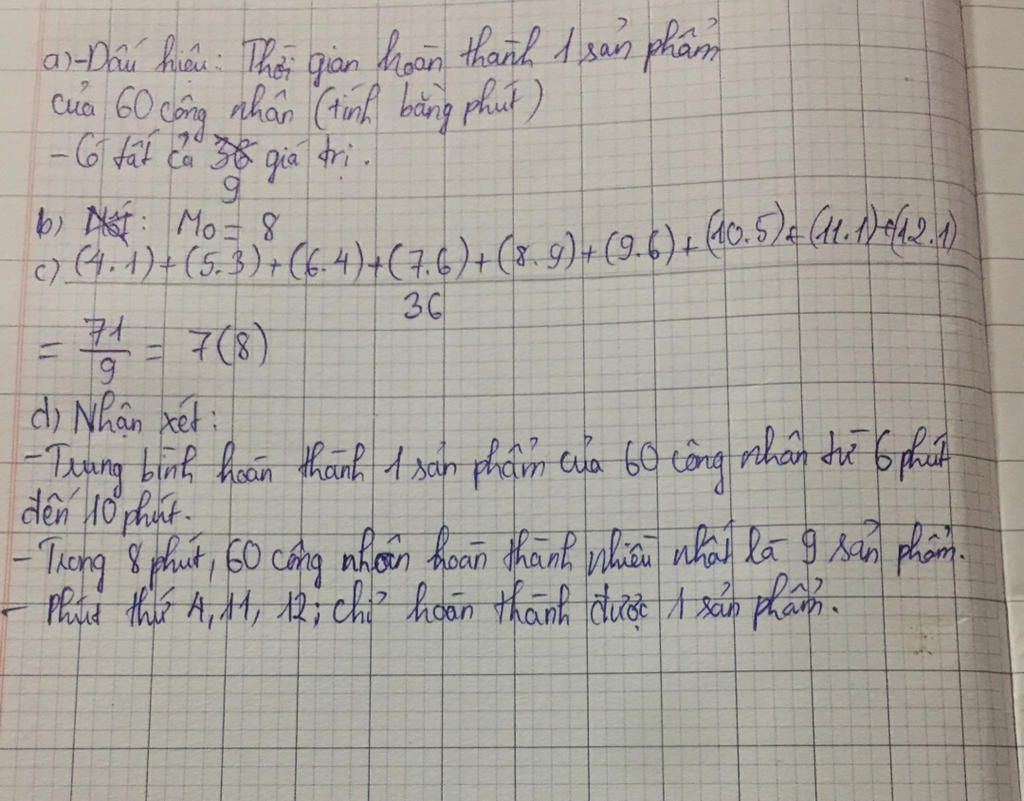 a) - Dấu hiệu: Thời gian hoàn thành 1 sản phẩm
của 60 công nhân (tính bằng phút)
- Có tất cả giá trị.
9
b) : M₀ = 8
c) (4.1)+(5.3)+(6.4)+(7.6)+(8.9)+(9.6)+(10.5)+(11.1)+(12.1)
36
= 71/9 = 7(8)
d) Nhận xét:
- Trung bình hoàn thành 1 sản phẩm của 60 công nhân từ 6 phút
đến 10 phút.
- Trong 8 phút, 60 công nhân hoàn thành nhiều nhất là 9 sản phẩm.
- Phút thứ 4, 11, 12; chỉ hoàn thành được 1 sản phẩm.